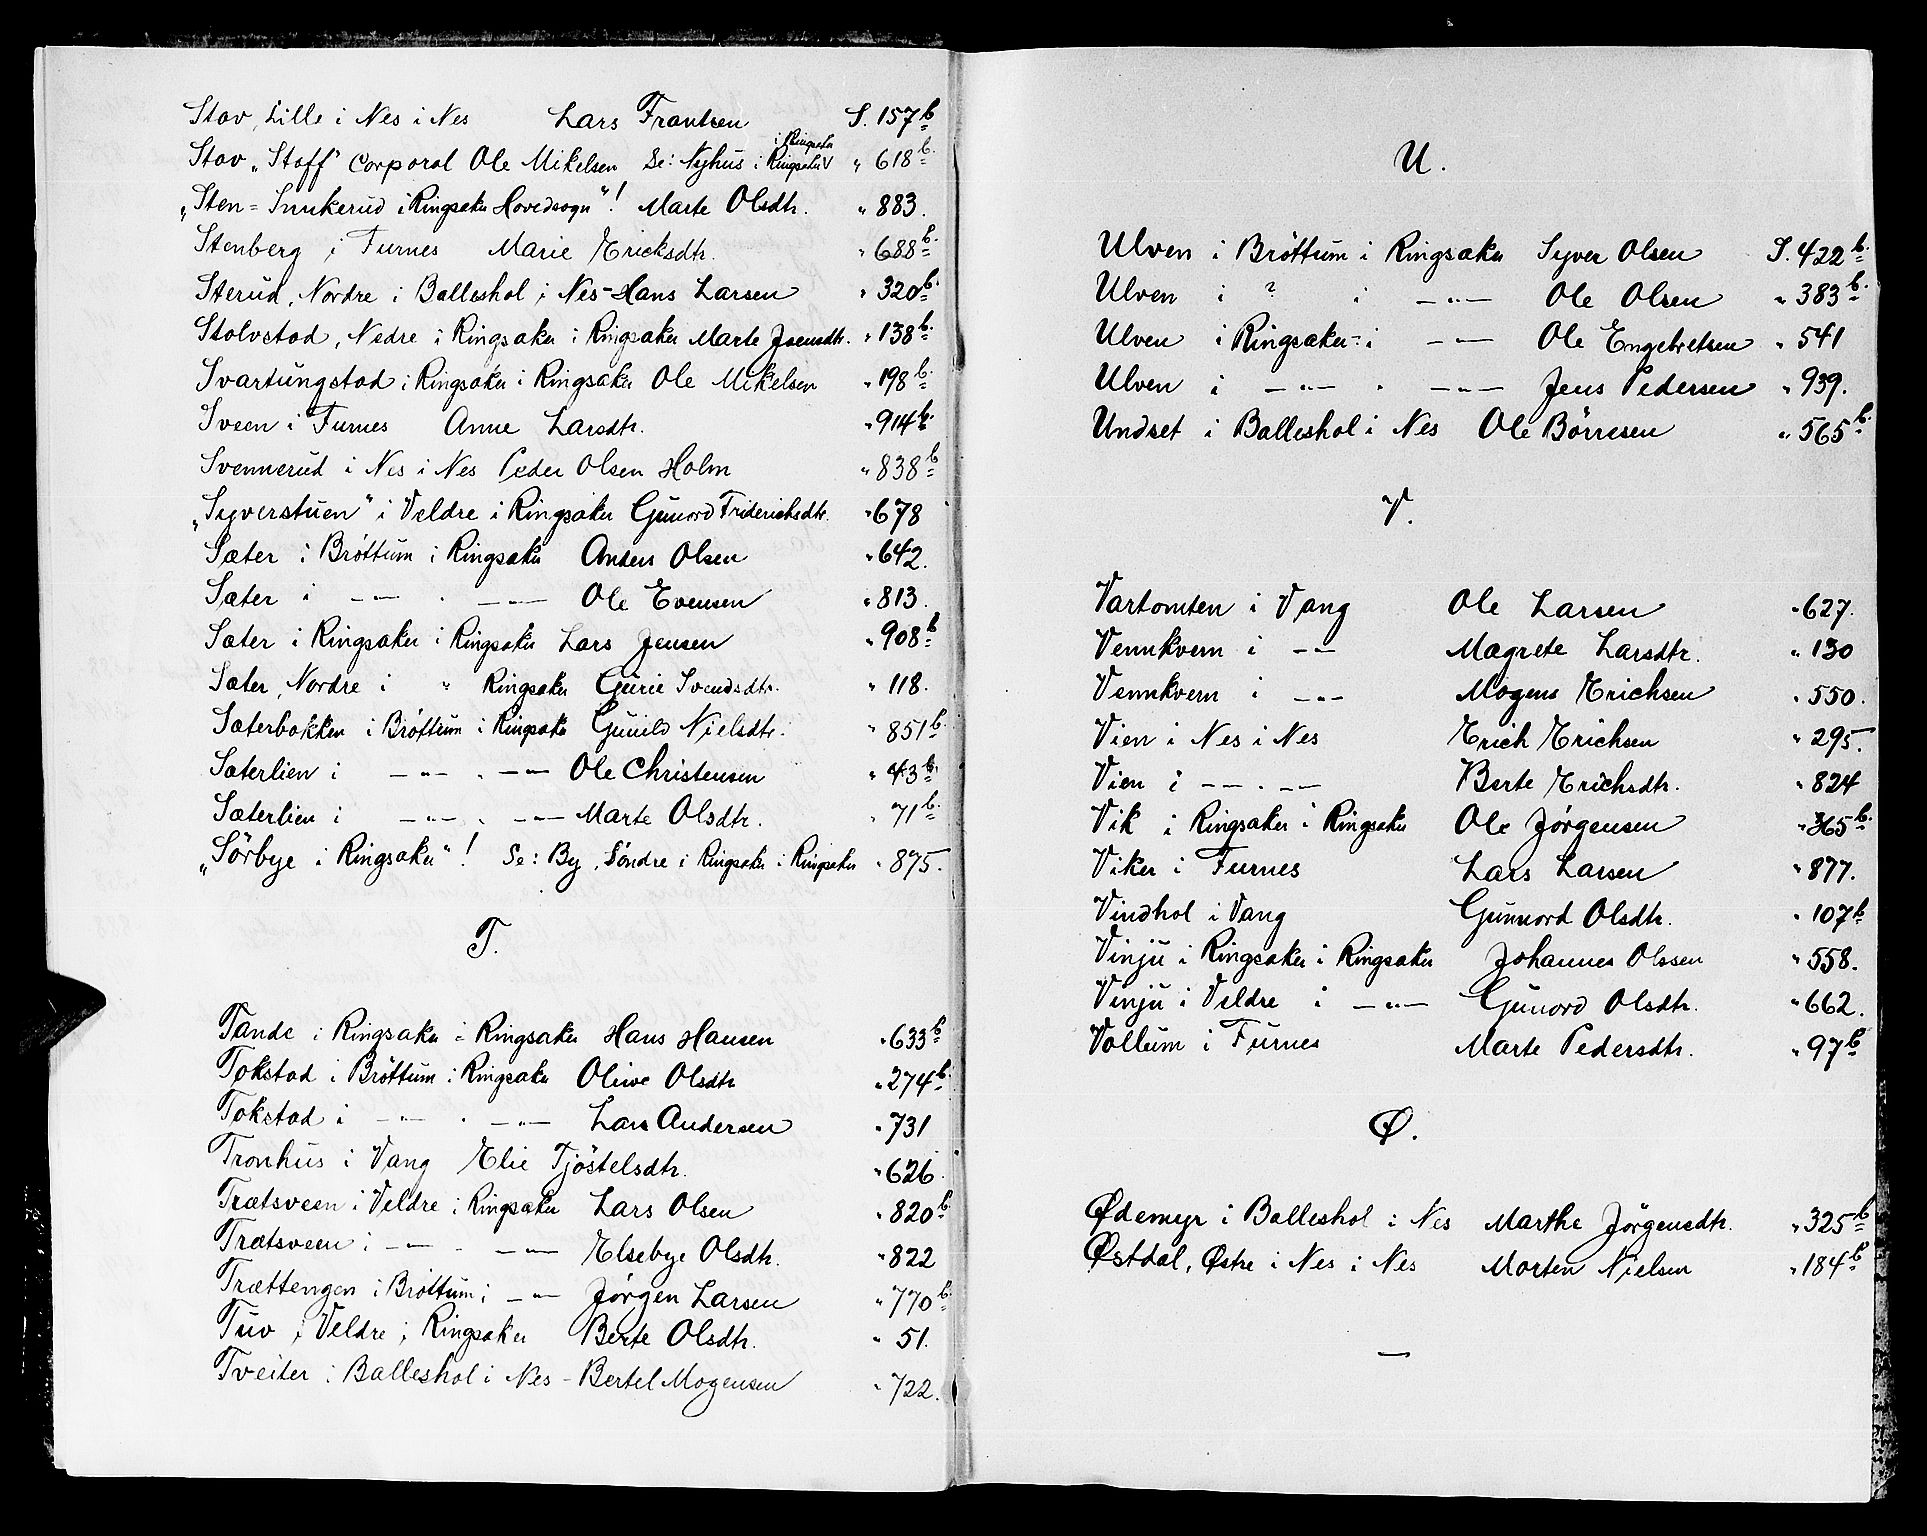 Stav, Lille i Nes i Nes Lars Frantsen S. 157 b
i Ringsaker
Stav „Staff" Corporal Ole Mikelsen Se: Nyhus i Ringsaker V „ 618 b.
„Sten = Snukerud i Ringsaker Hovedsogn"! Marte Olsdtr. „ 883.
Stenberg i Furnes Marie Ericksdtr. „ 688 b.
Sterud, Nordre i Balleshol i Nes - Hans Larsen „ 320 b.
Stolvstad, Nedre i Ringsaker i Ringsaker Marte Joensdtr. „ 138 b.
Svartungstad i Ringsaker i Ringsaker Ole Mikelsen „ 198 b.
Sveen i Furnes Anne Larsdtr. „ 914 b.
Svennerud i Nes i Nes Peder Olsen Holm „ 838 b
„Syverstuen" i Veldre i Ringsaker Gunord Friderichsdtr. „ 678
Sæter i Bröttum i Ringsaker Anders Olsen „ 642.
Sæter i —„— . —„— Ole Evensen „ 813.
Sæter i Ringsaker i Ringsaker Lars Jensen „ 908 b
Sæter, Nordre i „ Ringsaker Gurie Svendsdtr. „ 118.
Sæterbakken i Bröttum i Ringsaker Gunild Nielsdtr. „ 851 b.
Sæterlien i —„— . —„— Ole Christensen „ 43 b.
Sæterlien i —„— . —„— Marte Olsdtr. „ 71 b.
„Sörbye i Ringsaker"! Se: By, Söndre i Ringsaker i Ringsaker „ 875.
T.
Tande i Ringsaker i Ringsaker Hans Hansen „ 633 b
Tokstad i Bröttum i Ringsaker Oline Olsdtr „ 274 b.
Tokstad i —„— . —„— Lars Andersen „ 731
Tronhus i Vang Elie Tjöstelsdtr. „ 626
Trætsveen i Veldre i Ringsaker Lars Olsen „ 820 b.
Trætsveen i —„— . —„— Elsebye Olsdtr. „ 822
Trættengen i Bröttum i —„— Jörgen Larsen „ 770 b.
Tuv i Veldre i Ringsaker Berte Olsdtr. „ 51.
Tveiter i Balleshol i Nes - Bertel Mogensen „ 722.
U.
Ulven i Bröttum i Ringsaker Syver Olsen S. 422 b.
Ulven i ? i —„— Ole Olsen „ 383 b.
Ulven i Ringsaker i —„— Ole Engebretsen „ 541
Ulven i —„— . —„— Jens Pedersen „ 939.
Undset i Balleshol i Nes Ole Börresen „ 565 b.
V.
Vartomten i Vang Ole Larsen „ 627.
Vennkvern i —„— Magrete Larsdtr. „ 130
Vennkvern i —„— Mogens Erichsen „ 550.
Vien i Nes i Nes Erich Erichsen „ 295.
Vien i —„— . —„— Berte Erichsdtr. „ 824
Vik i Ringsaker i Ringsaker Ole Jörgensen „ 365 b.
Viker i Furnes Lars Larsen „ 877.
Vindhol i Vang Gunnord Olsdtr. „ 107 b
Vinju i Ringsaker i Ringsaker Johannes Olssen „ 558.
Vinju i Veldre i —„— Gunord Olsdtr. „ 662.
Vollum i Furnes Marte Pedersdtr. „ 97 b
Ø.
Ødemyr i Balleshol i Nes Marthe Jörgensdtr. „ 325 b
Østdal, Østre i Nes i Nes Morten Nielsen „ 184 b
—